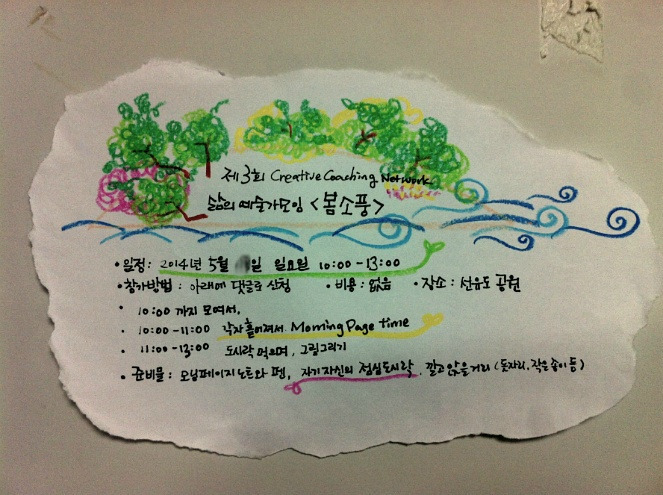 제3회 Creative Coaching Network
삶의 예술가모임 <봄소풍>
• 일정 : 2014년 5월 일 일요일 10:00 - 13:00
• 참가방법 : 아래에 댓글로 신청 • 비용 : 없음 • 장소 : 선유도 공원
• 10:00 까지 모여서,
• 10:00 - 11:00 각자 흩어져서 Morning Page time
• 11:00 - 13:00 도시락 먹으며, 그림그리기
• 준비물 : 모닝페이지 노트와 펜, 자기자신의 점심도시락, 깔고 앉을거리 (돗자리, 작은 송이 등)